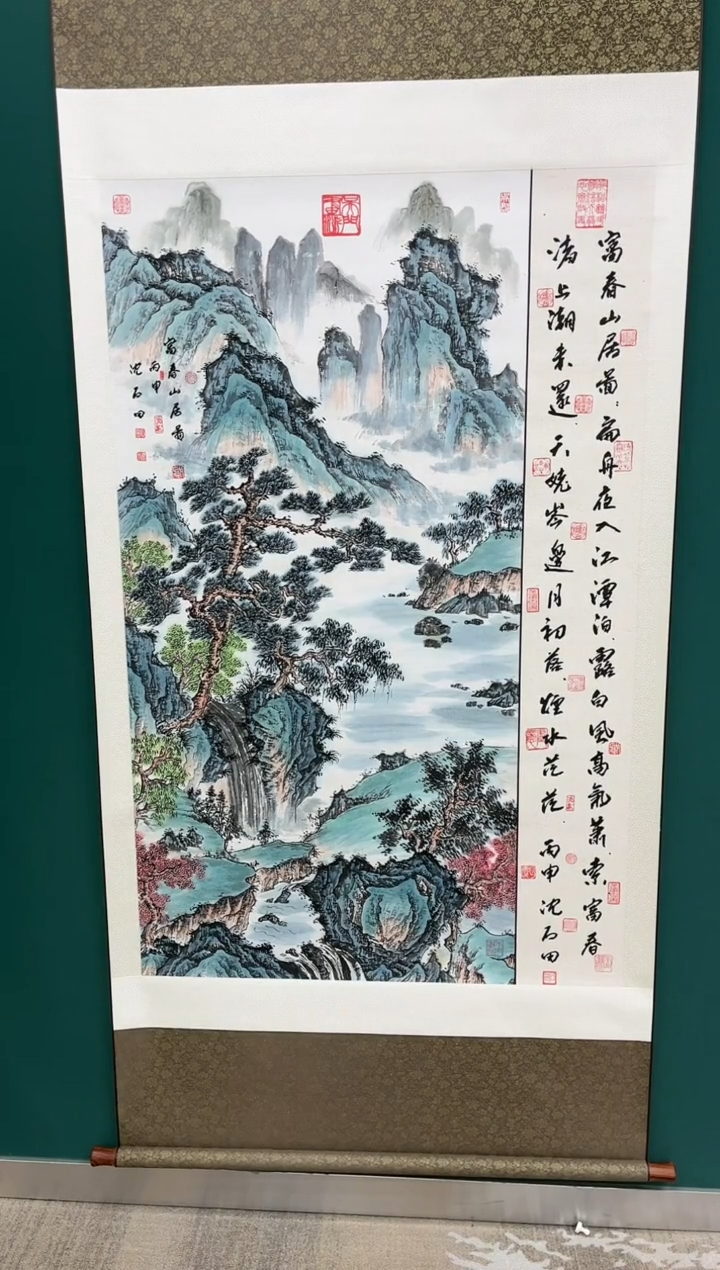 富春山居圖：扁舟夜入江潭泊露白風高氣蕭索富春
渚上潮未還天姥岑邊月初落煙水茫茫 丙申 沈石田
富春山居圖
丙申
沈石田